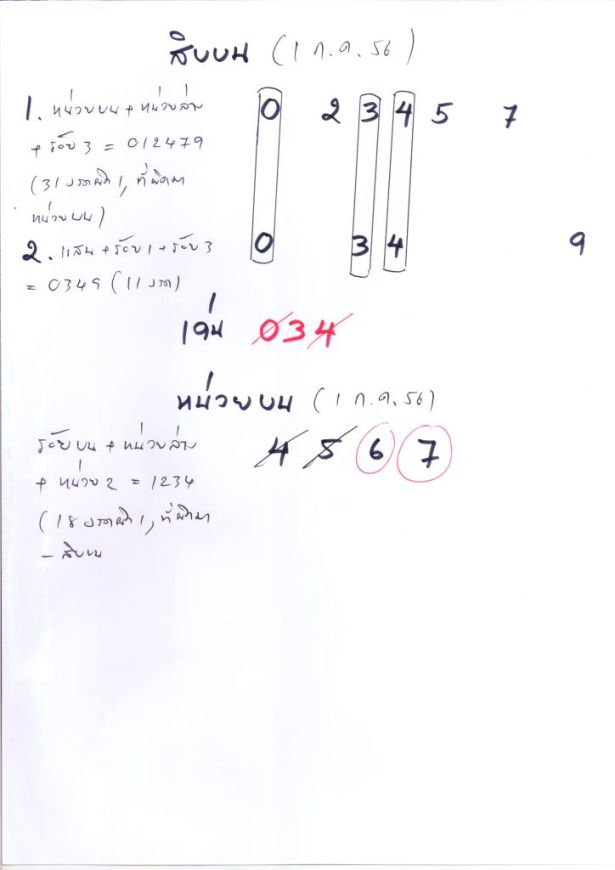 สิบบน (1 ก.ค. 56)
1. หน่วยบน + หน่วยล่าง
+ ร้อย 3 = 012479
(31 งวดผิด 1, ที่ผิดมา
หน่วยบน)
0 2 3 4 5 7
2. แสน + ร้อย 1 + ร้อย 3
= 0349 (11 งวด)
0 3 4 9
เด่น 034
หน่วยบน (1 ก.ค. 56)
ร้อยบน + หน่วยล่าง
+ หน่วย 2 = 1234
(18 งวดผิด 1, ที่ผิดมา
- สิบบน
4 5 6 7